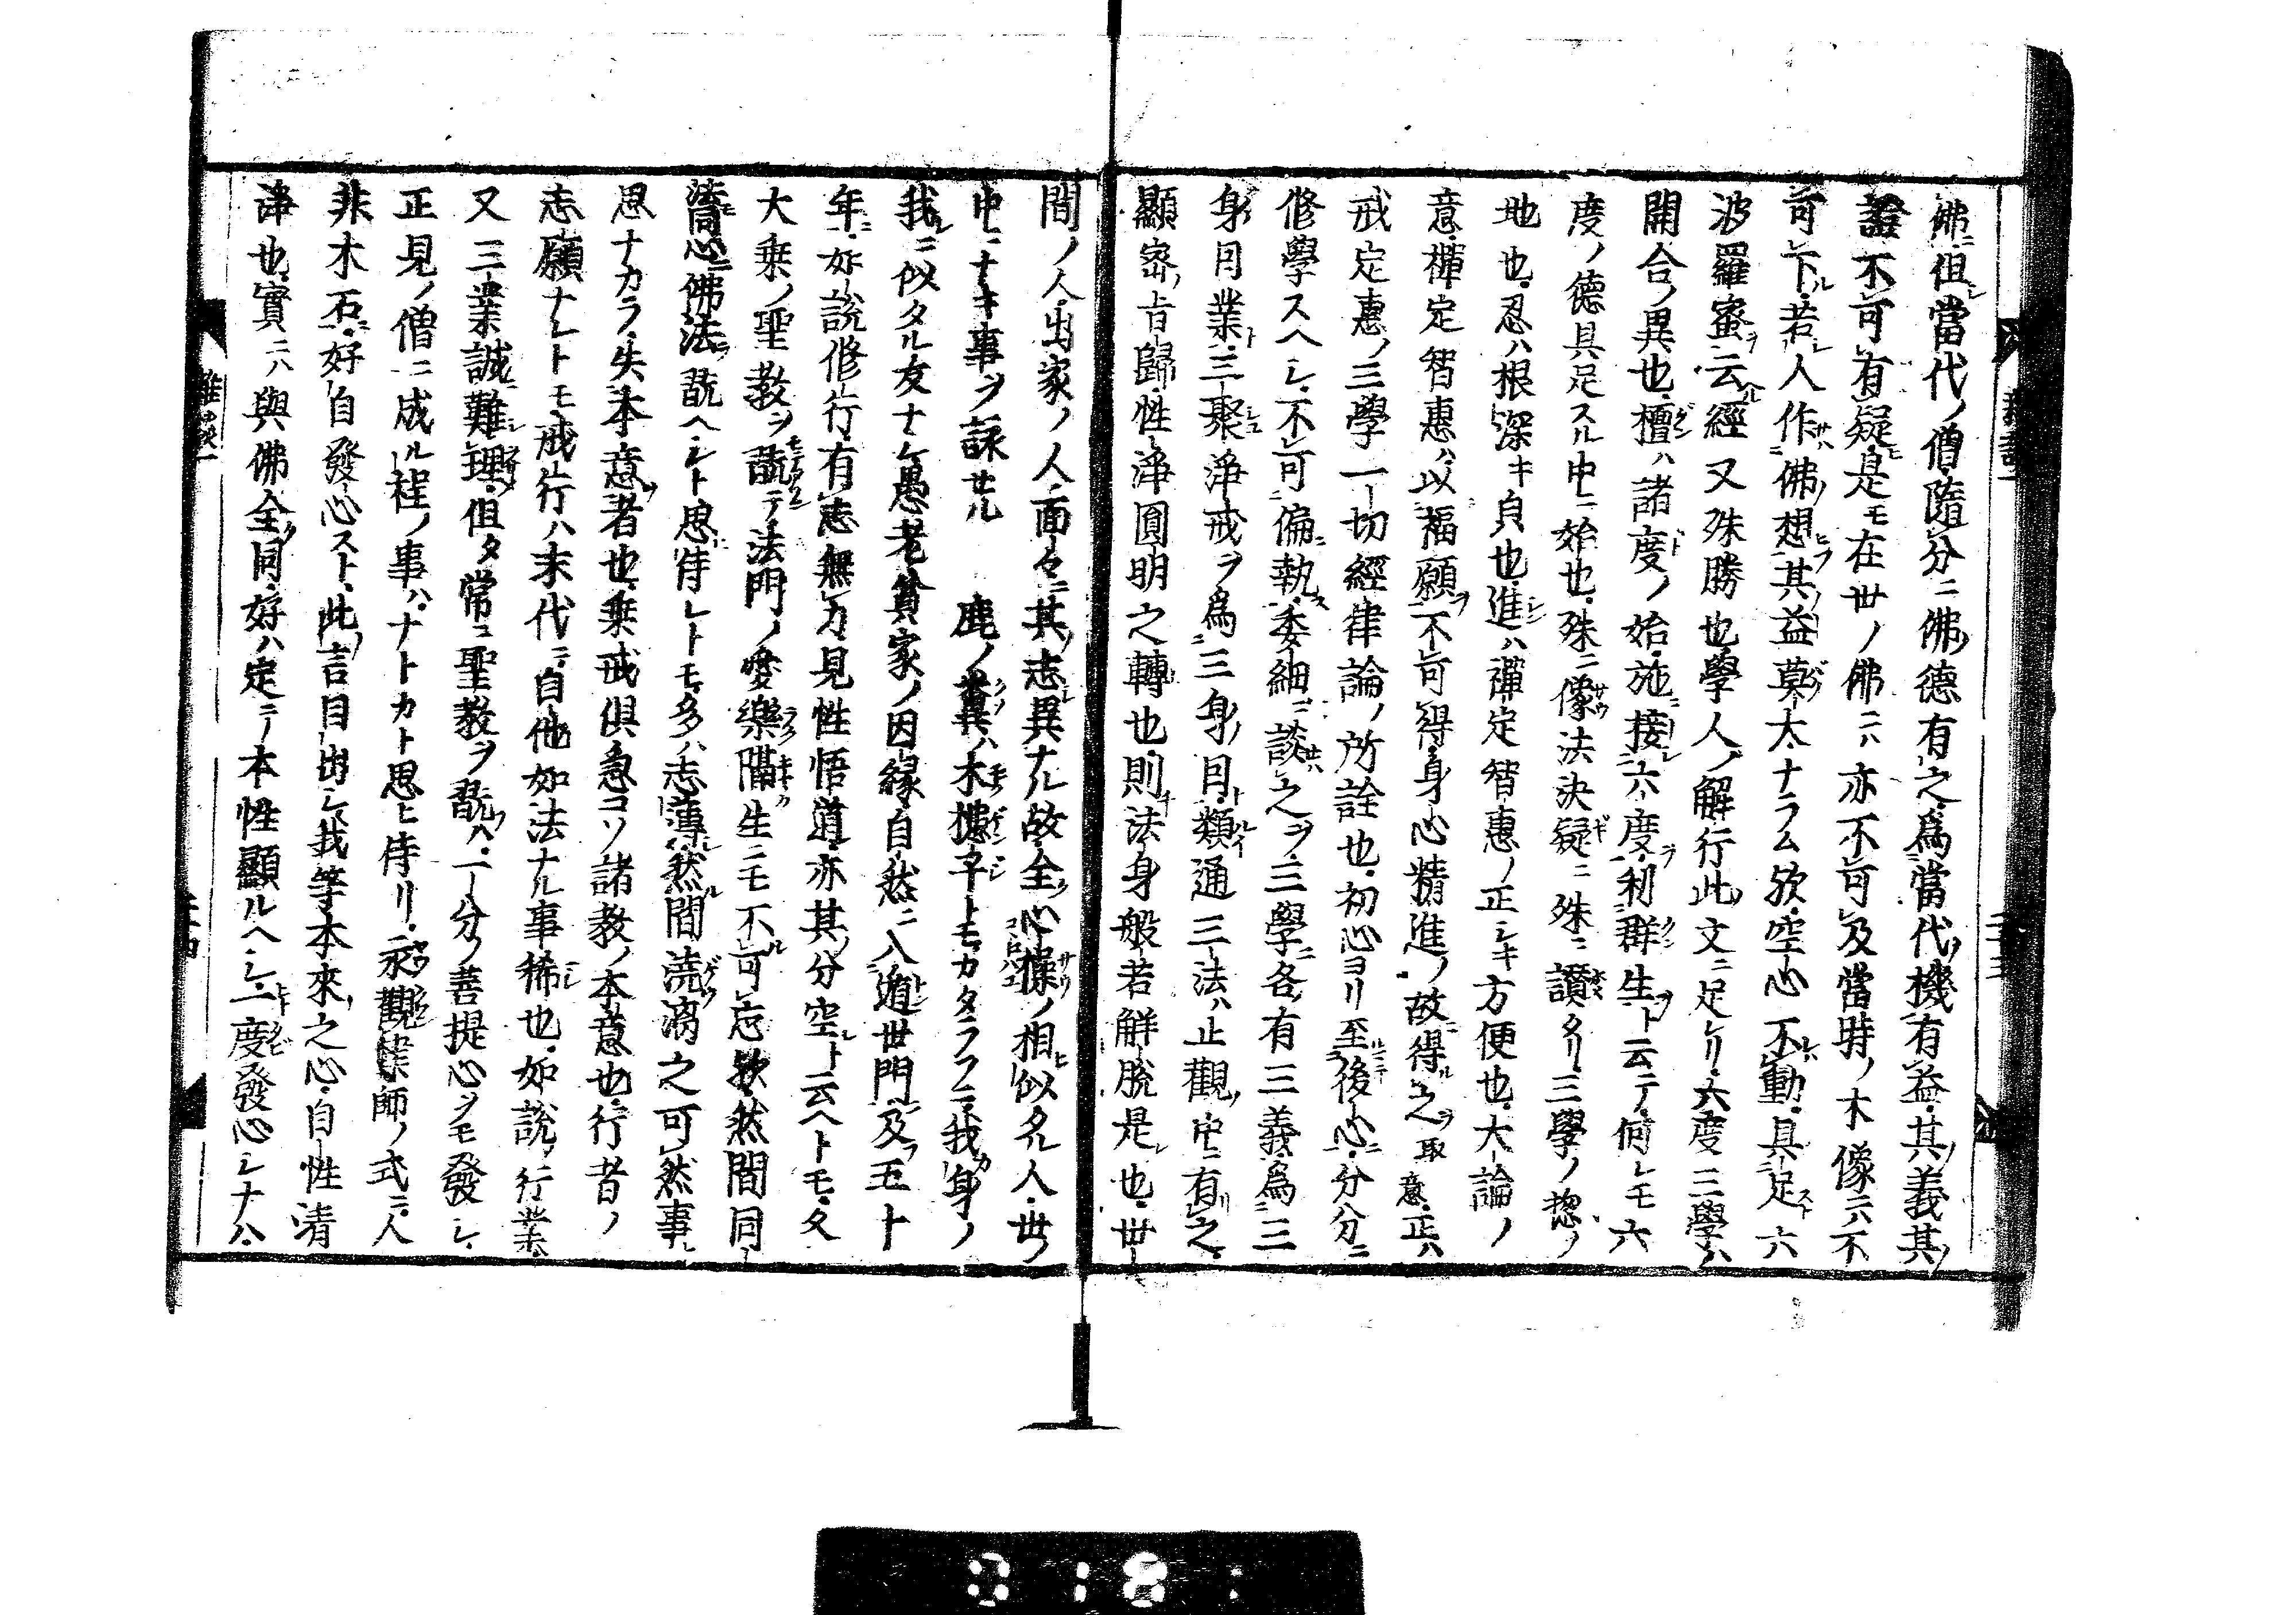 佛ニ但シ當代ノ僧隨分ニ佛ノ德有之爲當代ノ機有益其ノ義其ノ
證不可有疑是モ在世ノ佛ニハ亦不可及當時ノ木像ニハ不
可下ル若シ人作佛ノ想ヲ其ノ益莫大ナラム欤空心不動具足六
波羅蜜ヲ云ヘル經又殊勝也學人ノ解行此ノ文ニ足レリ六度三學ハ
開合ノ異也檀ハ諸度ノ始施接六度ヲ利群生ヲト云テ何レモ六
度ノ德具足スル中ニ始也殊ニ像法決疑ニ殊ニ讚タリ三學ノ惣ノ
地也忍ハ根深キ貞也進ハ禪定智惠ノ正シキ方便也大論ノ
意禪定智惠ハ以福願ヲ不可得身心精進ノ故得之ヲ取意正ハ
戒定惠ノ三學一切經律論ノ所詮也初心ヨリ至後心分分ニ
修學スヘシ不可偏執ス委細ニ談之ヲ三學ニ各有三義爲三
身ノ因業ト三聚淨戒ヲ爲三身ノ因ト類通三法ハ止觀ノ中ニ有之
顯密ノ旨歸性淨圓明之轉也則チ法身般若解脫是也世
間ノ人出家ノ人面々ニ其ノ志異ナル故全ク心操ノ相似タル人世ノ
中ニナキ事ヲ詠セル 鹿ノ糞ハ木槵子トモカタラフニ我カ身ノ
我レニ似タル友ナケ愚老貧家ノ因緣自然ニ入遁世門及五十
年ニ如說修行有志無力見性悟道亦其ノ分空シト云ヘトモ久
大乗ノ聖教ヲ翫テ法門ノ愛樂隔生ニモ不可忘欤然間同
法同心佛法ヲ翫ヘシト思侍レトモ多ハ志薄然間澆漓之可然事
思ナカラ失本意ヲ者也乗戒俱急コソ諸教ノ本意也行者ノ
志願ナレトモ戒行ハ末代ニ自他如法ナル事稀也如說ノ行業
又三業誠ニ難シ理但タ常ニ聖教ヲ翫ハ一分ノ菩提心ヲモ發シ
正見ノ僧ニ成ル程ノ事ハナトカト思ヒ侍リ永觀律師ノ式ニ人
非木石ニ好自發心スト此ノ言目出シ我等本來ノ之心自性清
淨也實ニハ與佛全ク同好ハ定テ本性顯ルヘシ一度發心シナハ